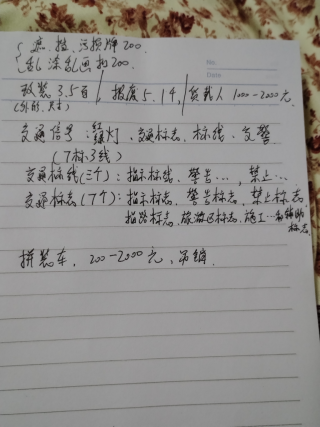 遮、挡、污损牌200.
乱涂乱画扣200.
No.
Date
改装3.5百 报废5.14, 货载人1000-2000元
(外形,尺寸)
交通信号:红绿灯、交通标志、标线、交警
(7标3线)
交通标线(三个):指示标线,警告…,禁止…
交通标志(7个):指示标志,警告标志,禁止标志
指路标志、旅游区标志、施工…和辅助
标志.
拼装车,200-2000元,吊销.